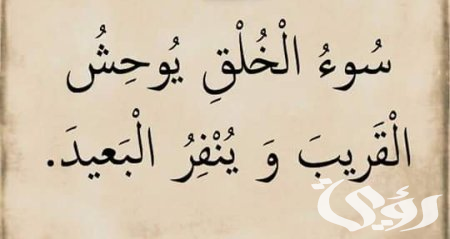 سُوءُ الْخُلْقِ يُوحِشُ
الْقَرِيبَ وَ يُنْفِرُ الْبَعيدَ.
رؤى